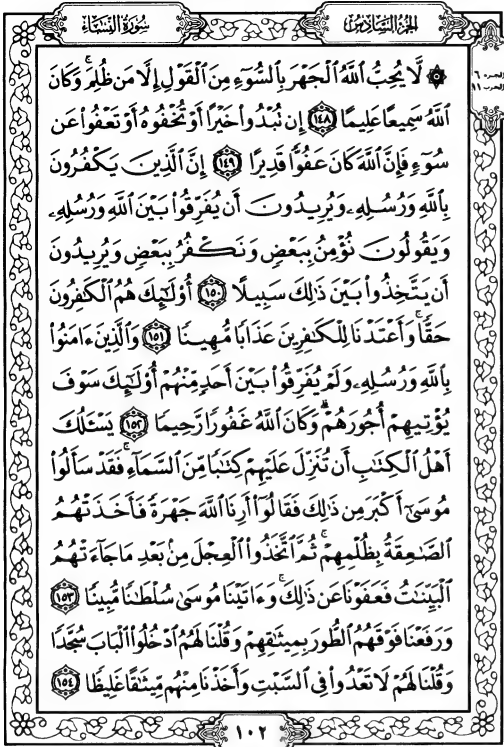 سُورَةُ النِّسَاءِ
الجُزءُ السَّادِسُ
۞ لَّا يُحِبُّ ٱللَّهُ ٱلْجَهْرَ بِٱلسُّوٓءِ مِنَ ٱلْقَوْلِ إِلَّا مَن ظُلِمَ ۚ وَكَانَ
ٱللَّهُ سَمِيعًا عَلِيمًا ١٤٨ إِن تُبْدُوا۟ خَيْرًا أَوْ تُخْفُوهُ أَوْ تَعْفُوا۟ عَن
سُوٓءٍ فَإِنَّ ٱللَّهَ كَانَ عَفُوًّا قَدِيرًا ١٤٩ إِنَّ ٱلَّذِينَ يَكْفُرُونَ
بِٱللَّهِ وَرُسُلِهِۦ وَيُرِيدُونَ أَن يُفَرِّقُوا۟ بَيْنَ ٱللَّهِ وَرُسُلِهِۦ
وَيَقُولُونَ نُؤْمِنُ بِبَعْضٍ وَنَكْفُرُ بِبَعْضٍ وَيُرِيدُونَ
أَن يَتَّخِذُوا۟ بَيْنَ ذَٰلِكَ سَبِيلًا ١٥٠ أُو۟لَـٰٓئِكَ هُمُ ٱلْكَـٰفِرُونَ
حَقًّا ۚ وَأَعْتَدْنَا لِلْكَـٰفِرِينَ عَذَابًا مُّهِينًا ١٥١ وَٱلَّذِينَ ءَامَنُوا۟
بِٱللَّهِ وَرُسُلِهِۦ وَلَمْ يُفَرِّقُوا۟ بَيْنَ أَحَدٍ مِّنْهُمْ أُو۟لَـٰٓئِكَ سَوْفَ
يُؤْتِيهِمْ أُجُورَهُمْ ۗ وَكَانَ ٱللَّهُ غَفُورًا رَّحِيمًا ١٥٢ يَسْـَٔلُكَ
أَهْلُ ٱلْكِتَـٰبِ أَن تُنَزِّلَ عَلَيْهِمْ كِتَـٰبًا مِّنَ ٱلسَّمَآءِ ۚ فَقَدْ سَأَلُوا۟
مُوسَىٰٓ أَكْبَرَ مِن ذَٰلِكَ فَقَالُوٓا۟ أَرِنَا ٱللَّهَ جَهْرَةً فَأَخَذَتْهُمُ
ٱلصَّـٰعِقَةُ بِظُلْمِهِمْ ۚ ثُمَّ ٱتَّخَذُوا۟ ٱلْعِجْلَ مِنۢ بَعْدِ مَا جَآءَتْهُمُ
ٱلْبَيِّنَـٰتُ فَعَفَوْنَا عَن ذَٰلِكَ ۚ وَءَاتَيْنَا مُوسَىٰ سُلْطَـٰنًا مُّبِينًا ١٥٣
وَرَفَعْنَا فَوْقَهُمُ ٱلطُّورَ بِمِيثَـٰقِهِمْ وَقُلْنَا لَهُمُ ٱدْخُلُوا۟ ٱلْبَابَ سُجَّدًا
وَقُلْنَا لَهُمْ لَا تَعْدُوا۟ فِى ٱلسَّبْتِ وَأَخَذْنَا مِنْهُم مِّيثَـٰقًا غَلِيظًا ١٥٤
١٠٢